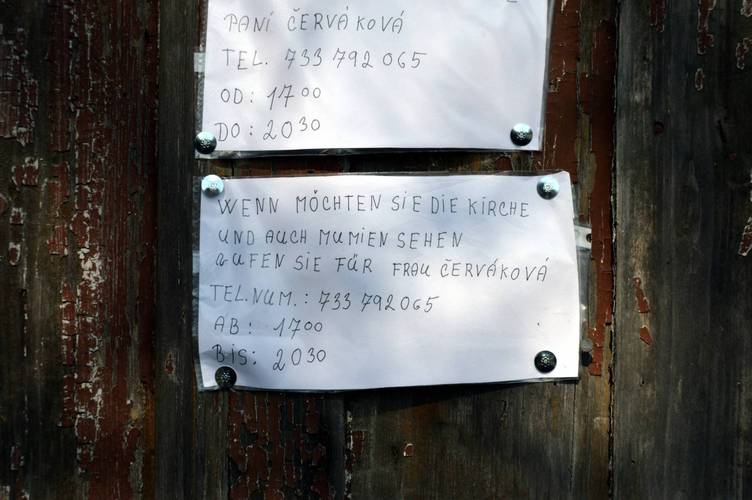 PANÍ ČERVÁKOVÁ
TEL. 733 792 065
OD: 17⁰⁰
DO: 20³⁰
WENN MÖCHTEN SIE DIE KIRCHE
UND AUCH MUMIEN SEHEN
RUFEN SIE FÜR FRAU ČERVÁKOVÁ
TEL. NUM.: 733 792 065
AB: 17⁰⁰
BIS: 20³⁰